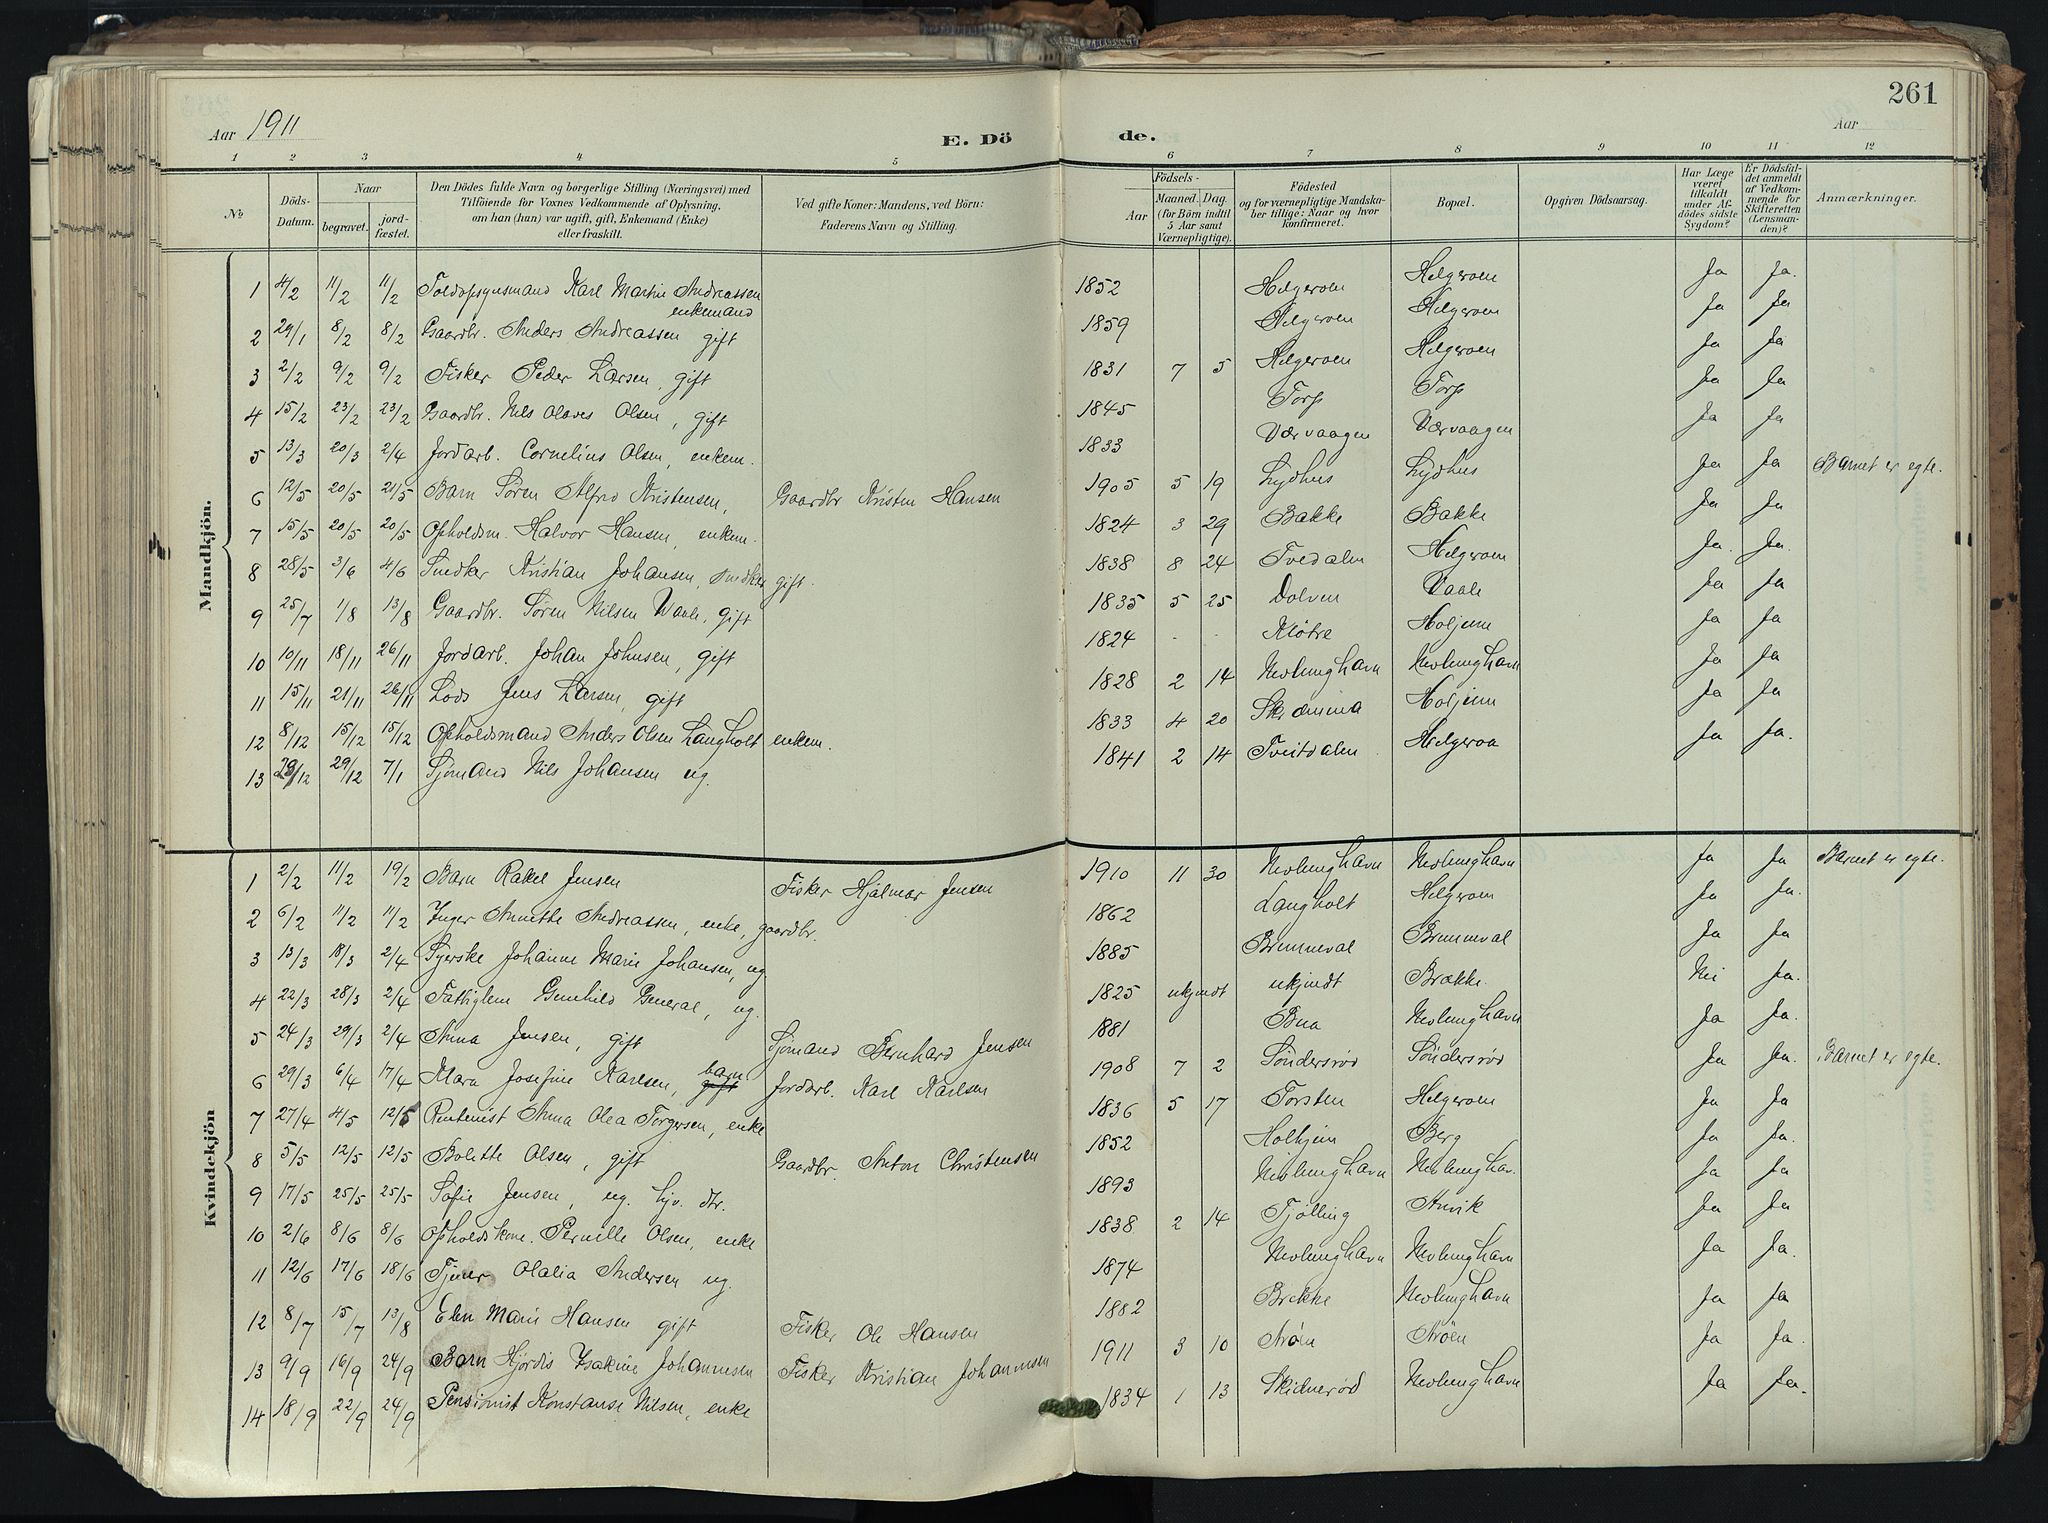 261
Aar 1911
E. Dö
de.
Aar
1 2 3 4 5 6 7 8 9 10 11 12
No
Döds-Datum.
Naar
begravet.
jordfæstet.
Den Dödes fulde Navn og borgerlige Stilling (Næringsvei) med
Tilföiende for Voxnes Vedkommende af Oplysning,
om han (hun) var ugift, gift, Enkemand (Enke)
eller fraskilt.
Ved gifte Koner: Mandens, ved Börn:
Faderens Navn og Stilling.
Födsels-
Aar
Maaned.
Dag.
(for Börn indtil
5 Aar samt
Værnepligtige).
Födested
og for værnepligtige Mandska-
ber tillige: Naar og hvor
konfirmeret.
Bopæl.
Opgiven Dödsaarsag.
Har Læge
været
tilkaldt
under Af-
dödes sidste
Sygdom?
Er Dödsfal-
det anmeldt
af Vedkom-
mende for
Skifteretten
(Lensman-
den)?
Anmærkninger.
Mandkjön.
1 4/2 11/2 11/2 Toldopsynsmand Karl Martin Andreassen enkemand 1852 Helgeroen Helgeroen Ja Ja.
2 29/1 8/2 8/2 Gaardbr. Anders Andreassen gift 1859 Helgeroen Helgeroen Ja Ja
3 2/2 9/2 9/2 Fisker Peder Larsen, gift 1831 7 5 Helgeroen Helgeroen Ja Ja
4 15/2 23/2 23/2 Gaardbr. Nils Olaves Olsen, gift 1845 Torp Torp Ja Ja
5 13/3 20/3 2/4 Jordarb. Cornelius Olsen, enkem. 1833 Værvaagen Værvaagen Ja Ja
6 12/5 20/5 21/5 Barn Sören Alfred Kristensen, Gaardbr Kristen Hansen 1905 5 19 Lydhus Lydhus Ja Ja Barnet er egte.
7 15/5 20/5 20/5 Opholdsm. Halvor Hansen, enkem. 1824 3 29 Bakke Bakke Ja Ja
8 28/5 3/6 4/6 Snedker Kristian Johansen, snedker gift. 1838 8 24 Tvedalen Helgeroen Ja. Ja.
9 25/7 1/8 13/8 Gaardbr. Sören Nilsen Vaale, gift 1835 5 25 Dolven Vaale Ja Ja
10 10/11 18/11 26/11 Jordarb. Johan Johnsen, gift 1824 - - Klöve Holjem Ja Ja
11 15/11 21/11 26/11 Lods Jens Larsen, gift 1828 2 14 Nevlunghavn Nevlunghavn Ja Ja
12 8/12 15/12 15/12 Opholdsmand Anders Olsen Langholt enkem. 1833 4 20 Holjem Ja Ja
13 29/12 7/1 Sjömand Nils Johansen ug. 1841 2 14 Tveitdalen Helgeroa Ja Ja.
Kvindekjön
1 2/2 11/2 19/2 Barn Rakel Jensen Fisker Hjalmar Jensen 1910 11 30 Nevlunghavn Nevlunghavn Ja Ja Barnet er egte.
2 6/2 11/2 11/2 Inger Annette Andreassen, enke, gaardbr. 1862 Langholt Helgeroen Ja Ja.
3 13/3 18/3 2/4 Syerske Johanne Marie Johansen, ug. 1885 Brunneval Brunneval Ja Ja
4 22/3 28/3 2/4 Fattiglem Gunhild General, ug. 1825 ukjendt ukjendt Brække. Nei Ja.
5 24/3 29/3 2/4 Anna Jensen, gift Sjömand Bernhard Jensen 1881 Bua Nevlunghavn Ja Ja.
6 29/3 6/4 17/4 Mara Josefine Karlsen, gift barn Jordarb. Karl Karlsen 1908 7 2 Söndersröd Söndersröd Ja Ja. Barnet er egte.
7 27/4 4/5 12/5 Rentenist Anna Olea Torgersen, enke 1836 5 17 Torsten Helgeroen Ja Ja
8 5/5 12/5 12/5 Bolette Olsen, gift Gaardbr. Anton Christensen 1852 Holhjem Berg Ja Ja.
9 17/5 25/5 25/5 Sofie Jensen, ug. hjv. dtr. 1893 Nevlunghavn Nevlunghav. Ja Ja
10 2/6 8/6 8/6 Opholdskone. Pernille Olsen, enke 1838 2 14 Tjölling Anvik Ja Ja
11 12/6 17/6 18/6 Tjener Olalia Andersen ug. 1874 Nevlunghavn Nevlunghavn Ja Ja.
12 8/7 15/7 13/8 Elen Marie Hansen gift Fisker Ole Hansen 1882 Brekke Nevlunghavn Ja Ja
13 9/9 16/9 24/9 Barn Hjördis Isakine Johannesen Fisker Kristian Johannesen 1911 3 10 Aröen Aröen Ja Ja.
14 18/9 22/9 24/9 Pensionist Konstanse Nilsen, enke 1834 1 13 Skidneröd Nevlunghavn Ja Ja.